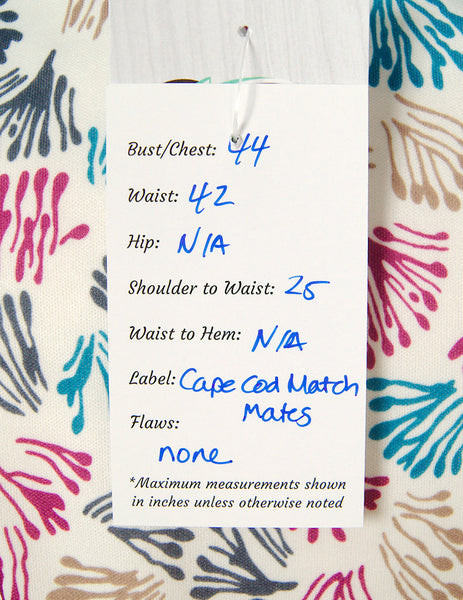 Bust/Chest: 44
Waist: 42
Hip: N/A
Shoulder to Waist: 25
Waist to Hem: N/A
Label: Cape Cod Match
Mates
Flaws:
none
*Maximum measurements shown
in inches unless otherwise noted